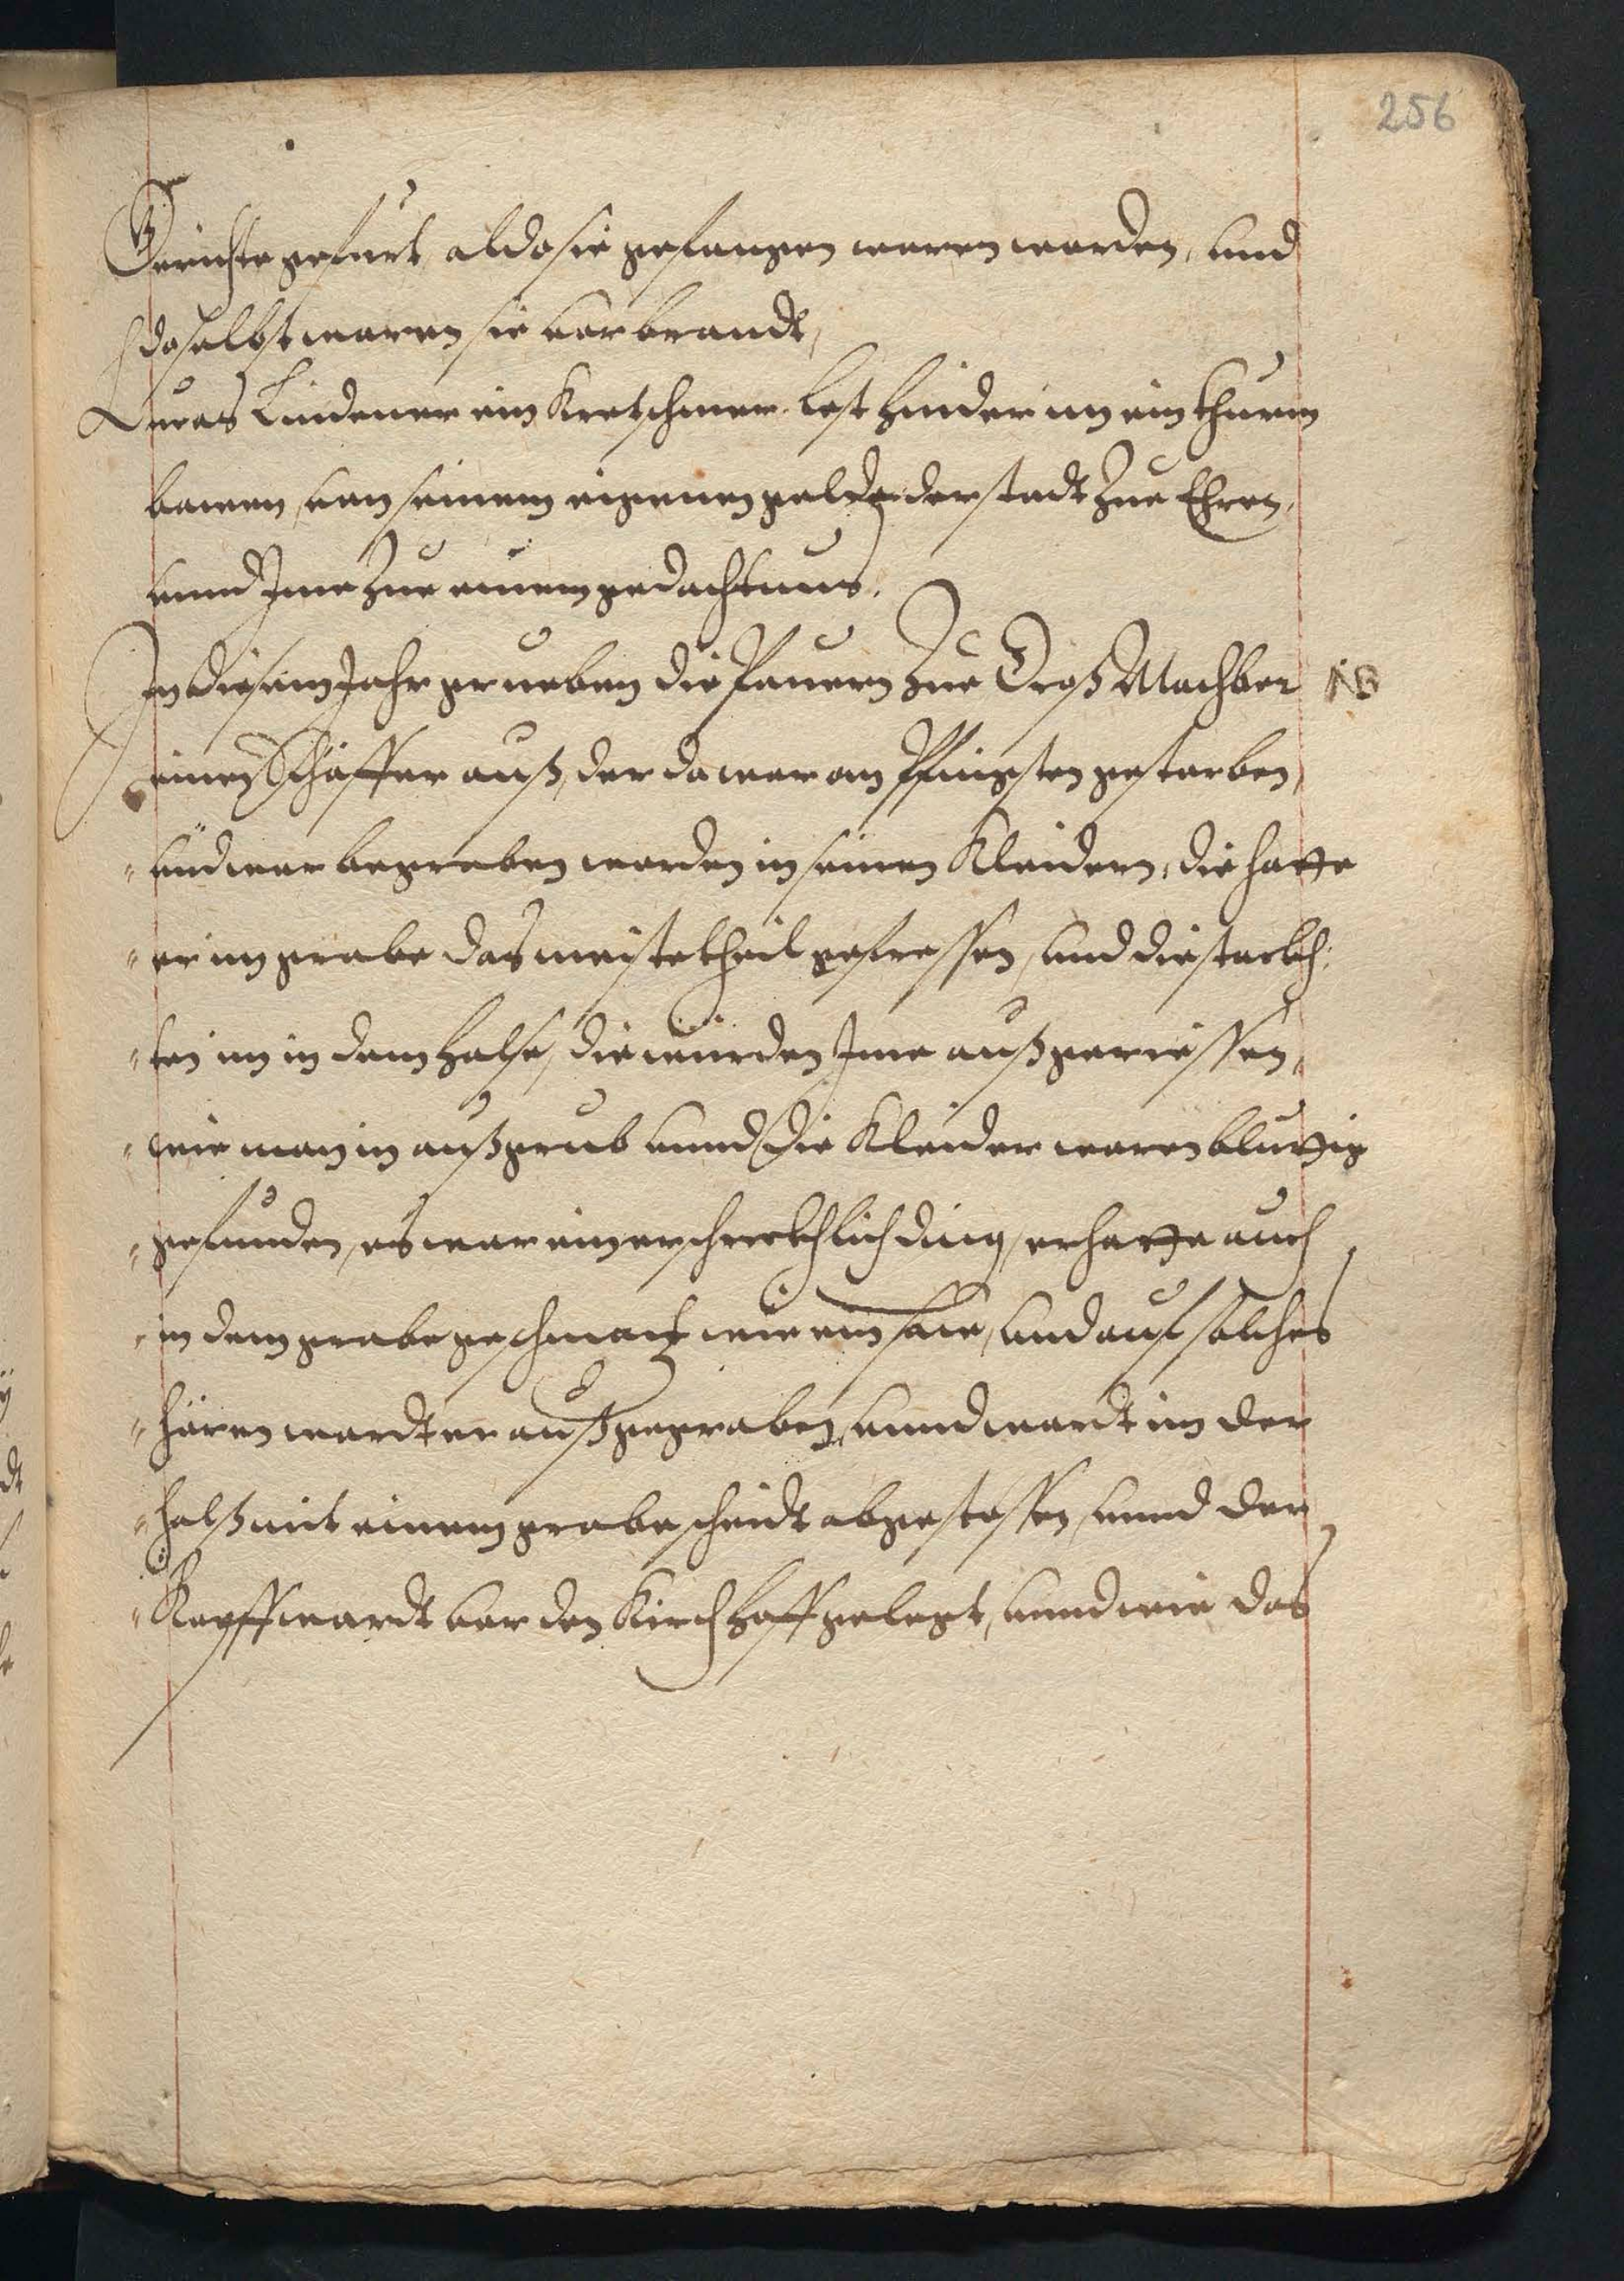 256
Gerichte gefurt aldo sie gefangen waren worden, und
doselbst waren sie vorbrandt,
Lucas Lindener ein Kretschmer lest hinder im ein thurm
bawen, van seinem eigenen gelde der stadt Zue Ehren,
unnd Ime Zue einem gedachtnus.
In diesem Jahr grueben die Pauern Zue Groß Mochber
einen Schäffer auß, der do war an Pfingsten gestorben,
und war begraben worden in seinen Kleidern, die hatte
er im grabe das meiste theil gefressen, und die stackh
ten im in dem halse, die wurden Ime außgeriessen,
wie man in außgrub unnd die Kleider waren bluttig
gefunden, es war ein erschrecklich ding, er hatte auch
in dem grabe geschmatzt wie ein saw, und auf solches
hören wardt er außgegraben, unnd wardt im der
halß mit einem grabescheidt abgestossen, unnd der
Kopff wardt vor den Kirchhoff gelegt, unnd wie das
NB